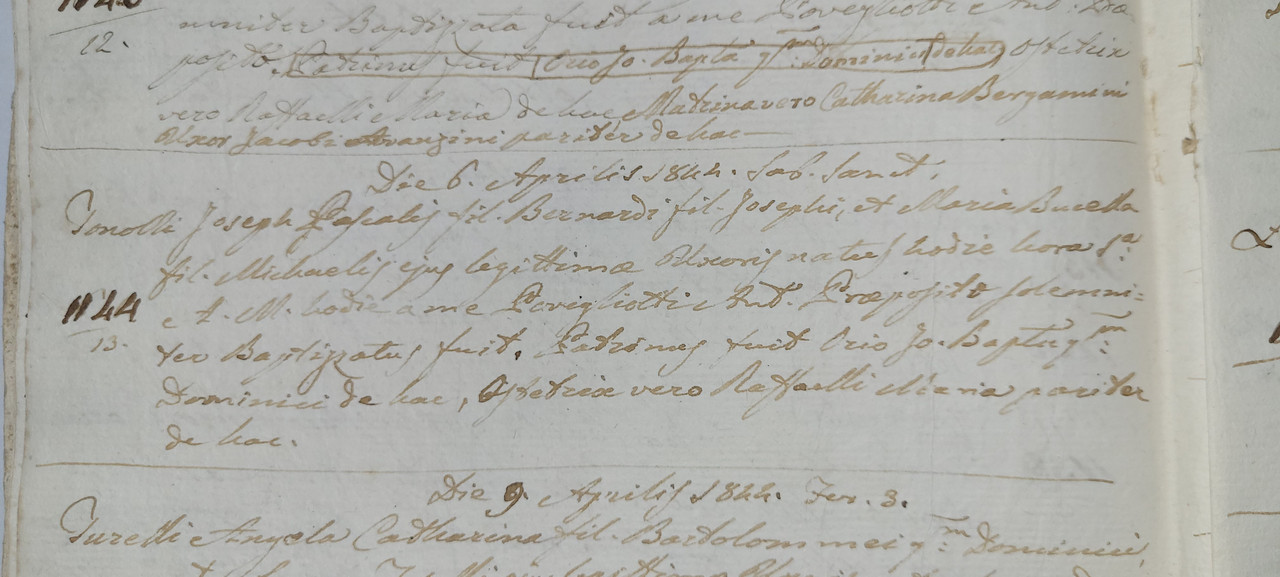 12.
uniter Baptizzata fuit a me Poveghotti Ant. Præ
posito. Patrinus fuit Orio Jo. Bapta qm Dominici de hac Obstetrix
vero Raffaelli Maria de hac Matrina vero Catharina Bergamini
Uxor Jacobi Avanzini pariter de hac
Die 6. Aprilis 1844. Sab. Sanct.
Tonolli Joseph Pascalis fil. Bernardi fil. Josephi, et Maria Bucella
fil. Michaelis ejus legittimæ Uxoris natus hodie hora 5.a
1144 A. M. hodie a me Poveghotti Ant. Præposito solemni=
13. ter Baptizzatus fuit. Patrinus fuit Orio Jo. Bapta qm
Dominici de hac, Obstetrix vero Raffaelli Maria pariter
de hac.
Die 9. Aprilis 1844. Fer. 3.
Turelli Angela Catharina fil. Bartolommei qm Dominici,